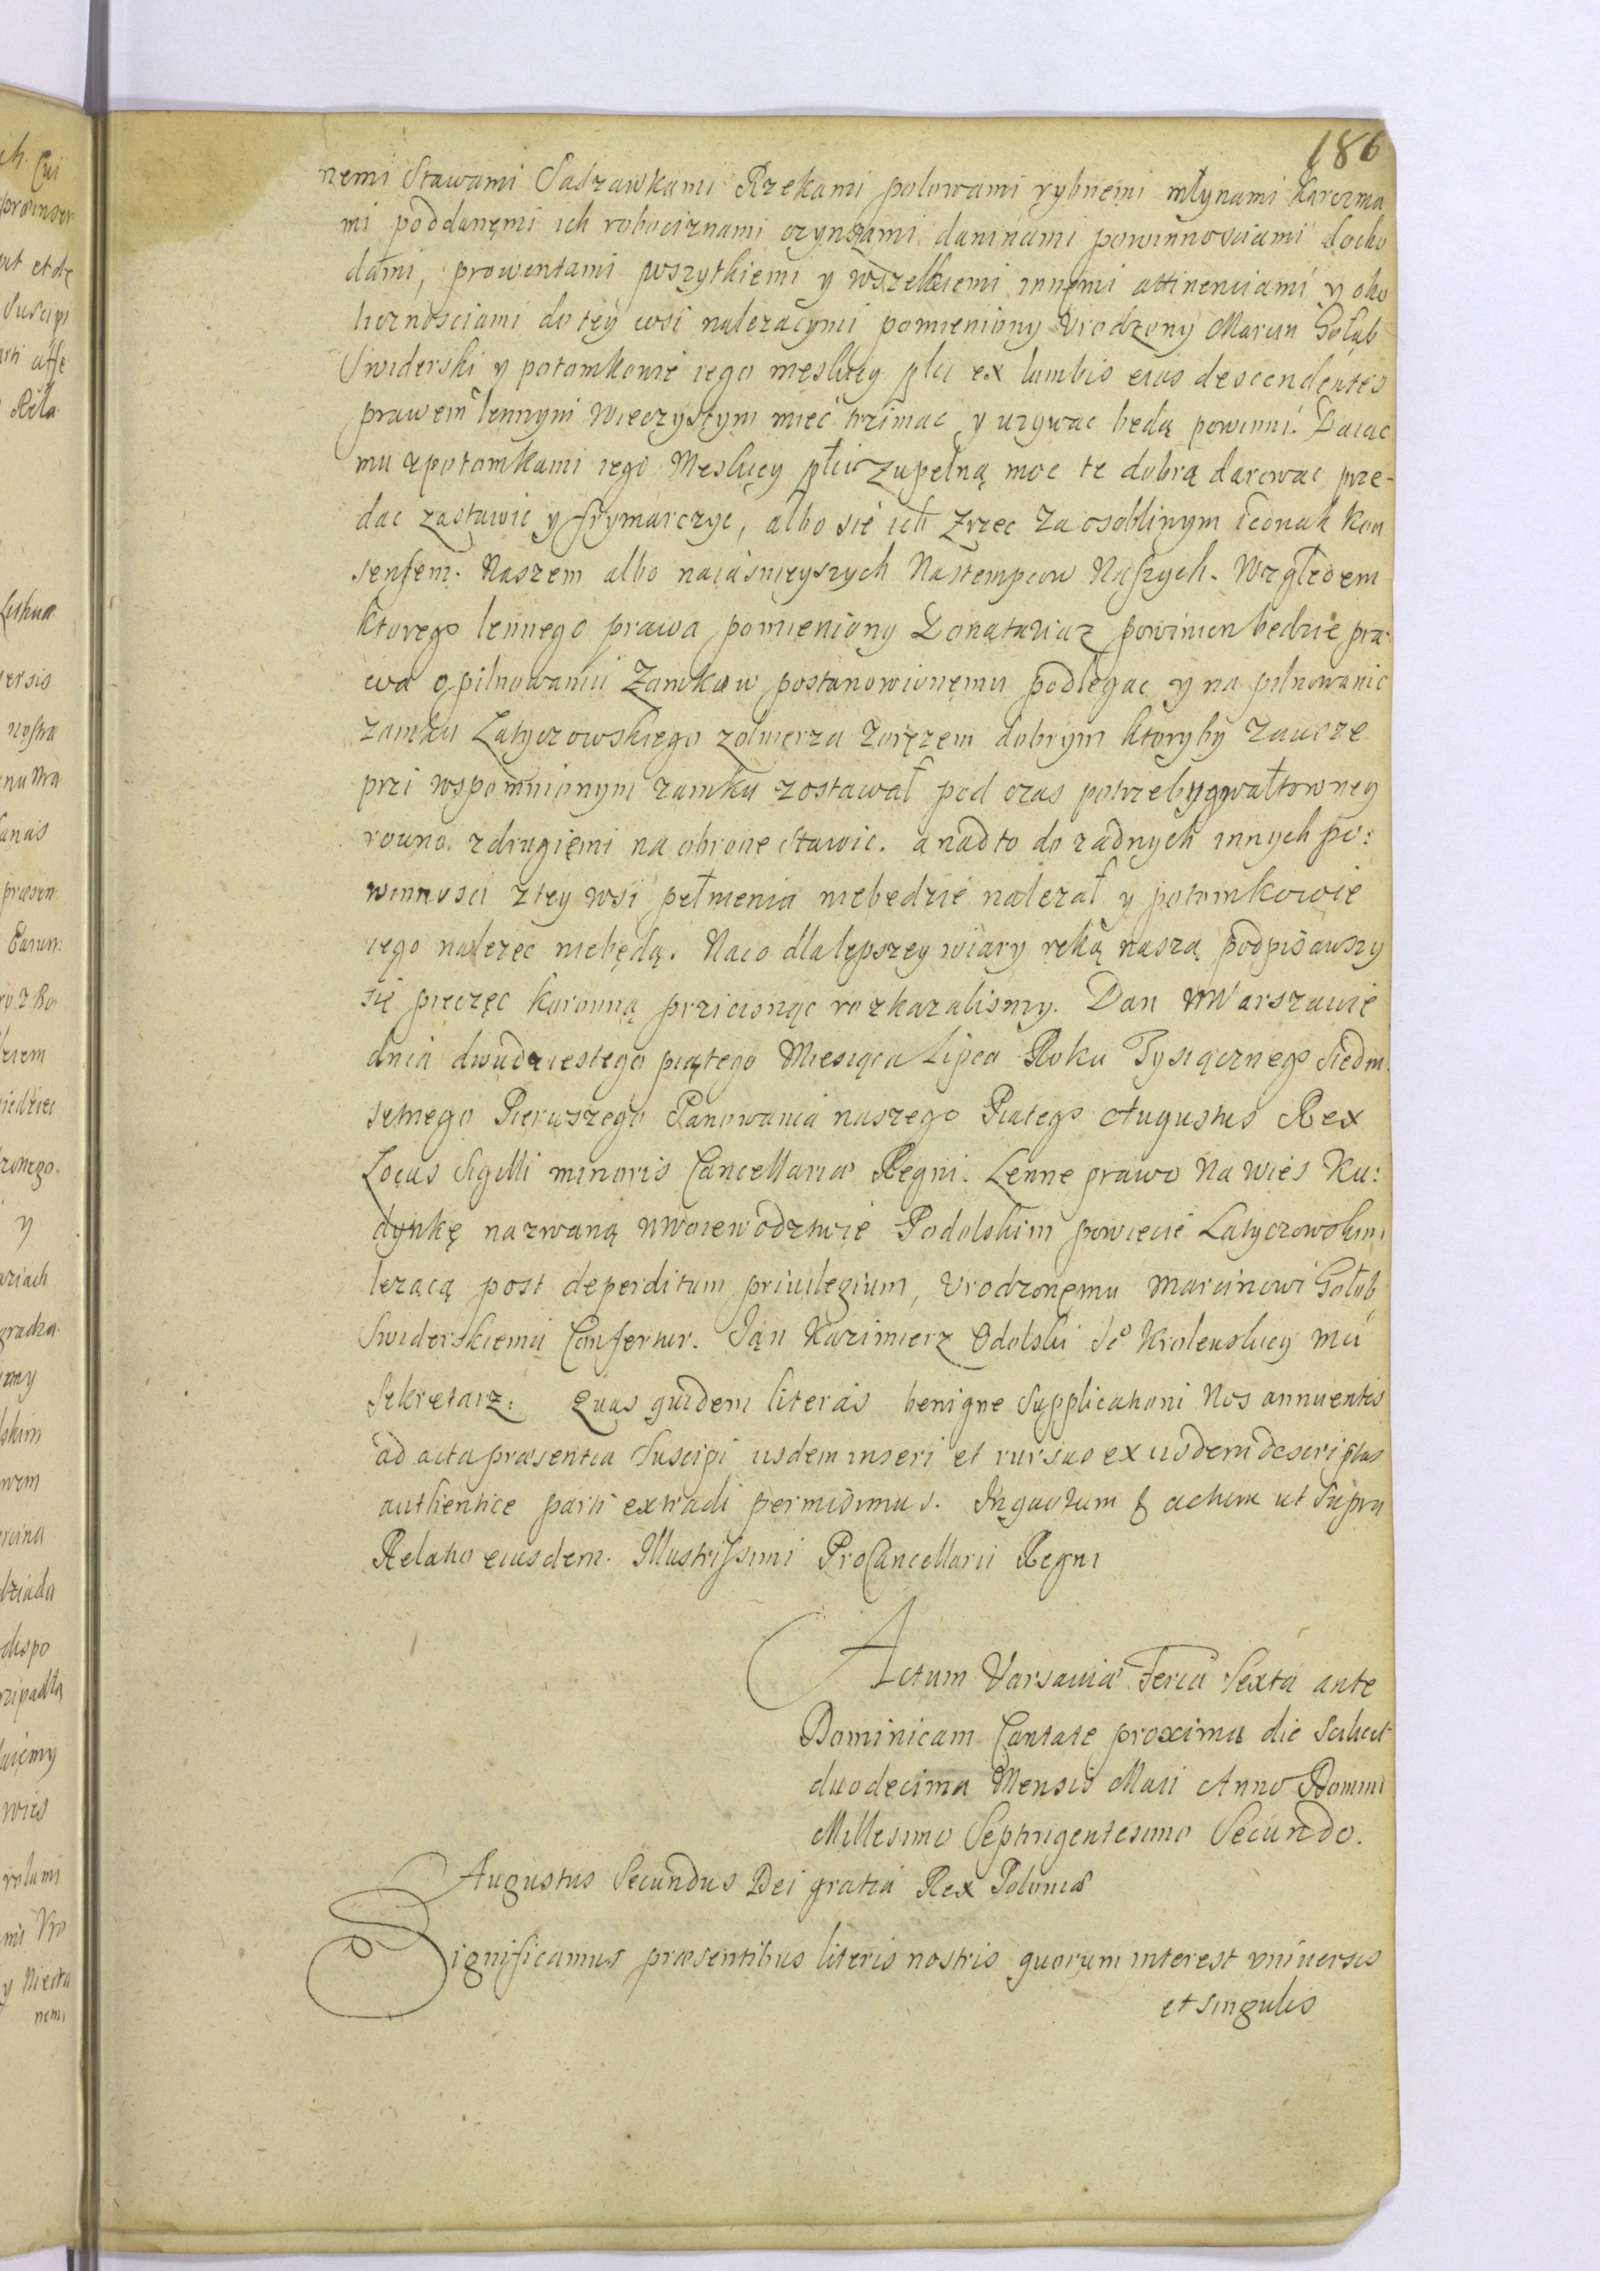 186
nemi Stawami Sadzawkami Rzekami polowami rybnemi młynami karczma
mi poddanęmi ich robociznami czynszami daninami powinnosciami docho
dami, prowentami wszytkiemi y wszelkiemi innemi attinenciami y oko
licznosciami do tey wsi nalezacymi pomieniony Vrodzony Marcin Gołąb
Swiderski y potomkowie iego męskiey płci ex lumbis eius descendentes
prawem lennym wieczystym miec trzimac y uzywac będą powinni. Daiąc
mu zpotomkami iego Meskiey płci zupełną moc te dobra darowac prze-
dac zastawic y frymarczyc, albo się ich zrzec za osoblinym iednak kon
sensem. Naszem albo naiasnieyszych Nastempcow Naszych. Względem
ktorego lennego prawa pomieniony Donatariusz powinien będzie pra
wu o pilnowaniu Zamkow postanowionemu podlegac y na pilnowanie
zamku Latyczowskiego zolnierza zoręzem dobrym ktoryby zawsze
przi wspomnionym zamku zostawał pod czas potrzeby gwałtowney
rowno zdrugiemi na obrone stawic. a nadto do zadnych innych po:
winnosci ztey wsi pełnienia niebędzie nalezał y potomkowie
iego nalezec niebędą. Naco dla lepszey wiary ręką naszą podpisawszy
się pieczęc koronną przicisnąc rozkazalismy. Dan w Warszawie
dnia dwudziestego piątego Miesiąca Lipca Roku Tysiącznego Siedm
setnego Pierwszego Panowania naszego Piątego Augustus Rex
Locus Sigilli minoris Cancellariæ Regni. Lenne prawo na wies Ku:
dynkę nazwaną wwoiewodztwie Podolskim powiecie Latyczowskim
lezącą post deperditum priuilegium, Vrodzonemu Marcinowi Gołąb
Swiderskiemu Confertur. Jan Kazimierz Odolski Jo Krolewskiey Mci
Sekretarz: Quas quidem literas benigne supplicationi Nos annuentes
ad acta præsentia suscipi iisdem inseri et rursus ex iisdem descriptas
authentice parti extradi permisimus. In quorum & actum ut supra
Relatio eiusdem. Illustrissimi ProCancellarii Regni
Actum Varsauiæ Feria Sexta ante
Dominicam Cantate proxima die scilicet
duodecima Mensis Maii Anno Domini
Millesimo Septingentesimo Secundo.
Augustus Secundus Dei gratia Rex Poloniæ
Significamus præsentibus literis nostris quorum interest vniuersis
et singulis